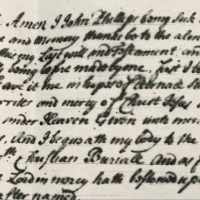 Amen I John Phillips being sick
and Memory thanks be to the alm
this my Last will and Testament an
being before made by one. first I
gave it me in hopes of
merrits and mercy of Christ Jesus
under Heaven Given unto men
And I bequath my body to the
Christian Buriall. And as f
Lord in mercy hath bestowed up
after named